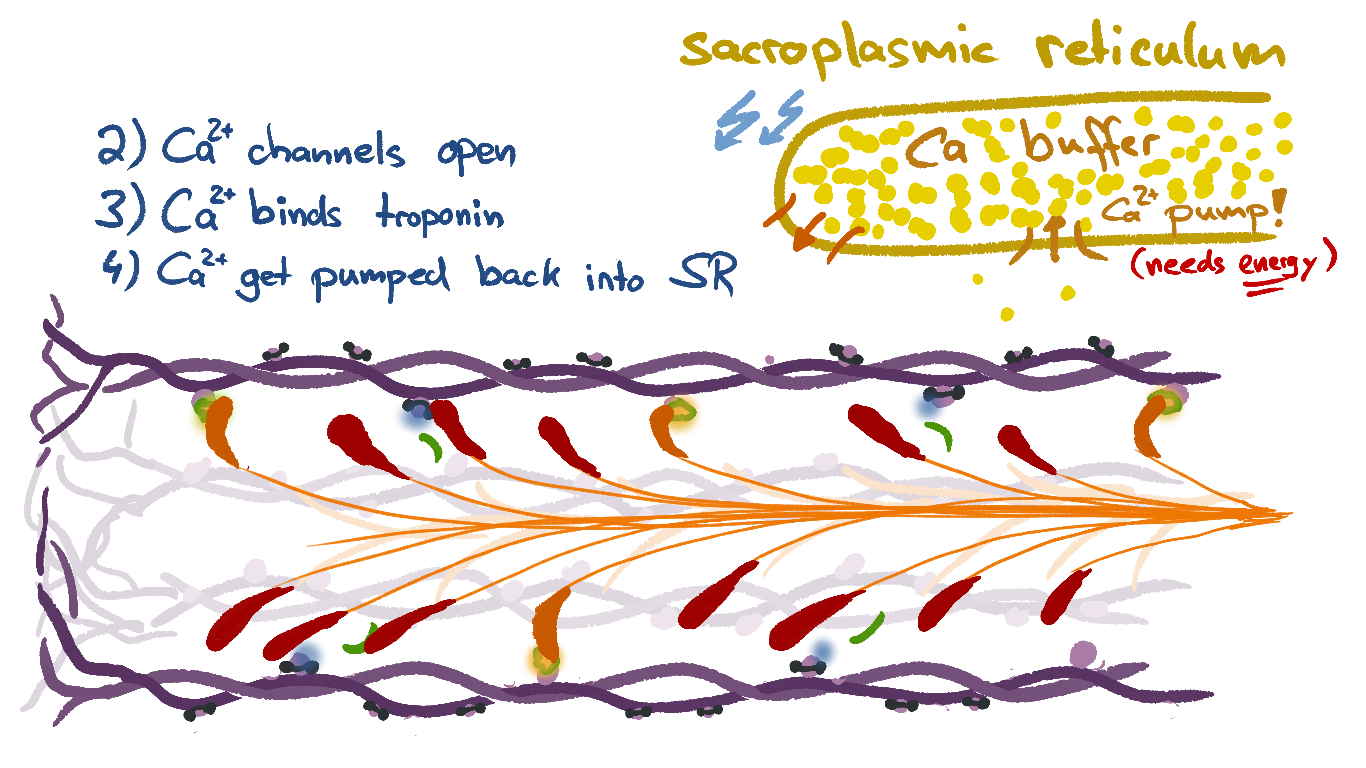 sacroplasmic reticulum
2) Ca²⁺ channels open
3) Ca²⁺ binds troponin
4) Ca²⁺ get pumped back into SR
Ca buffer
Ca²⁺ pump!
(needs energy)